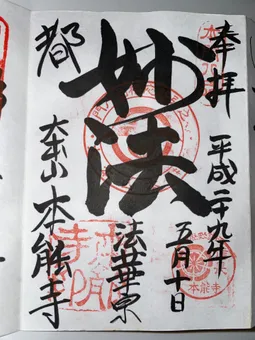 奉拝
平成二九年
五月十日
妙法
法華宗
都
大本山 本能寺
本能寺